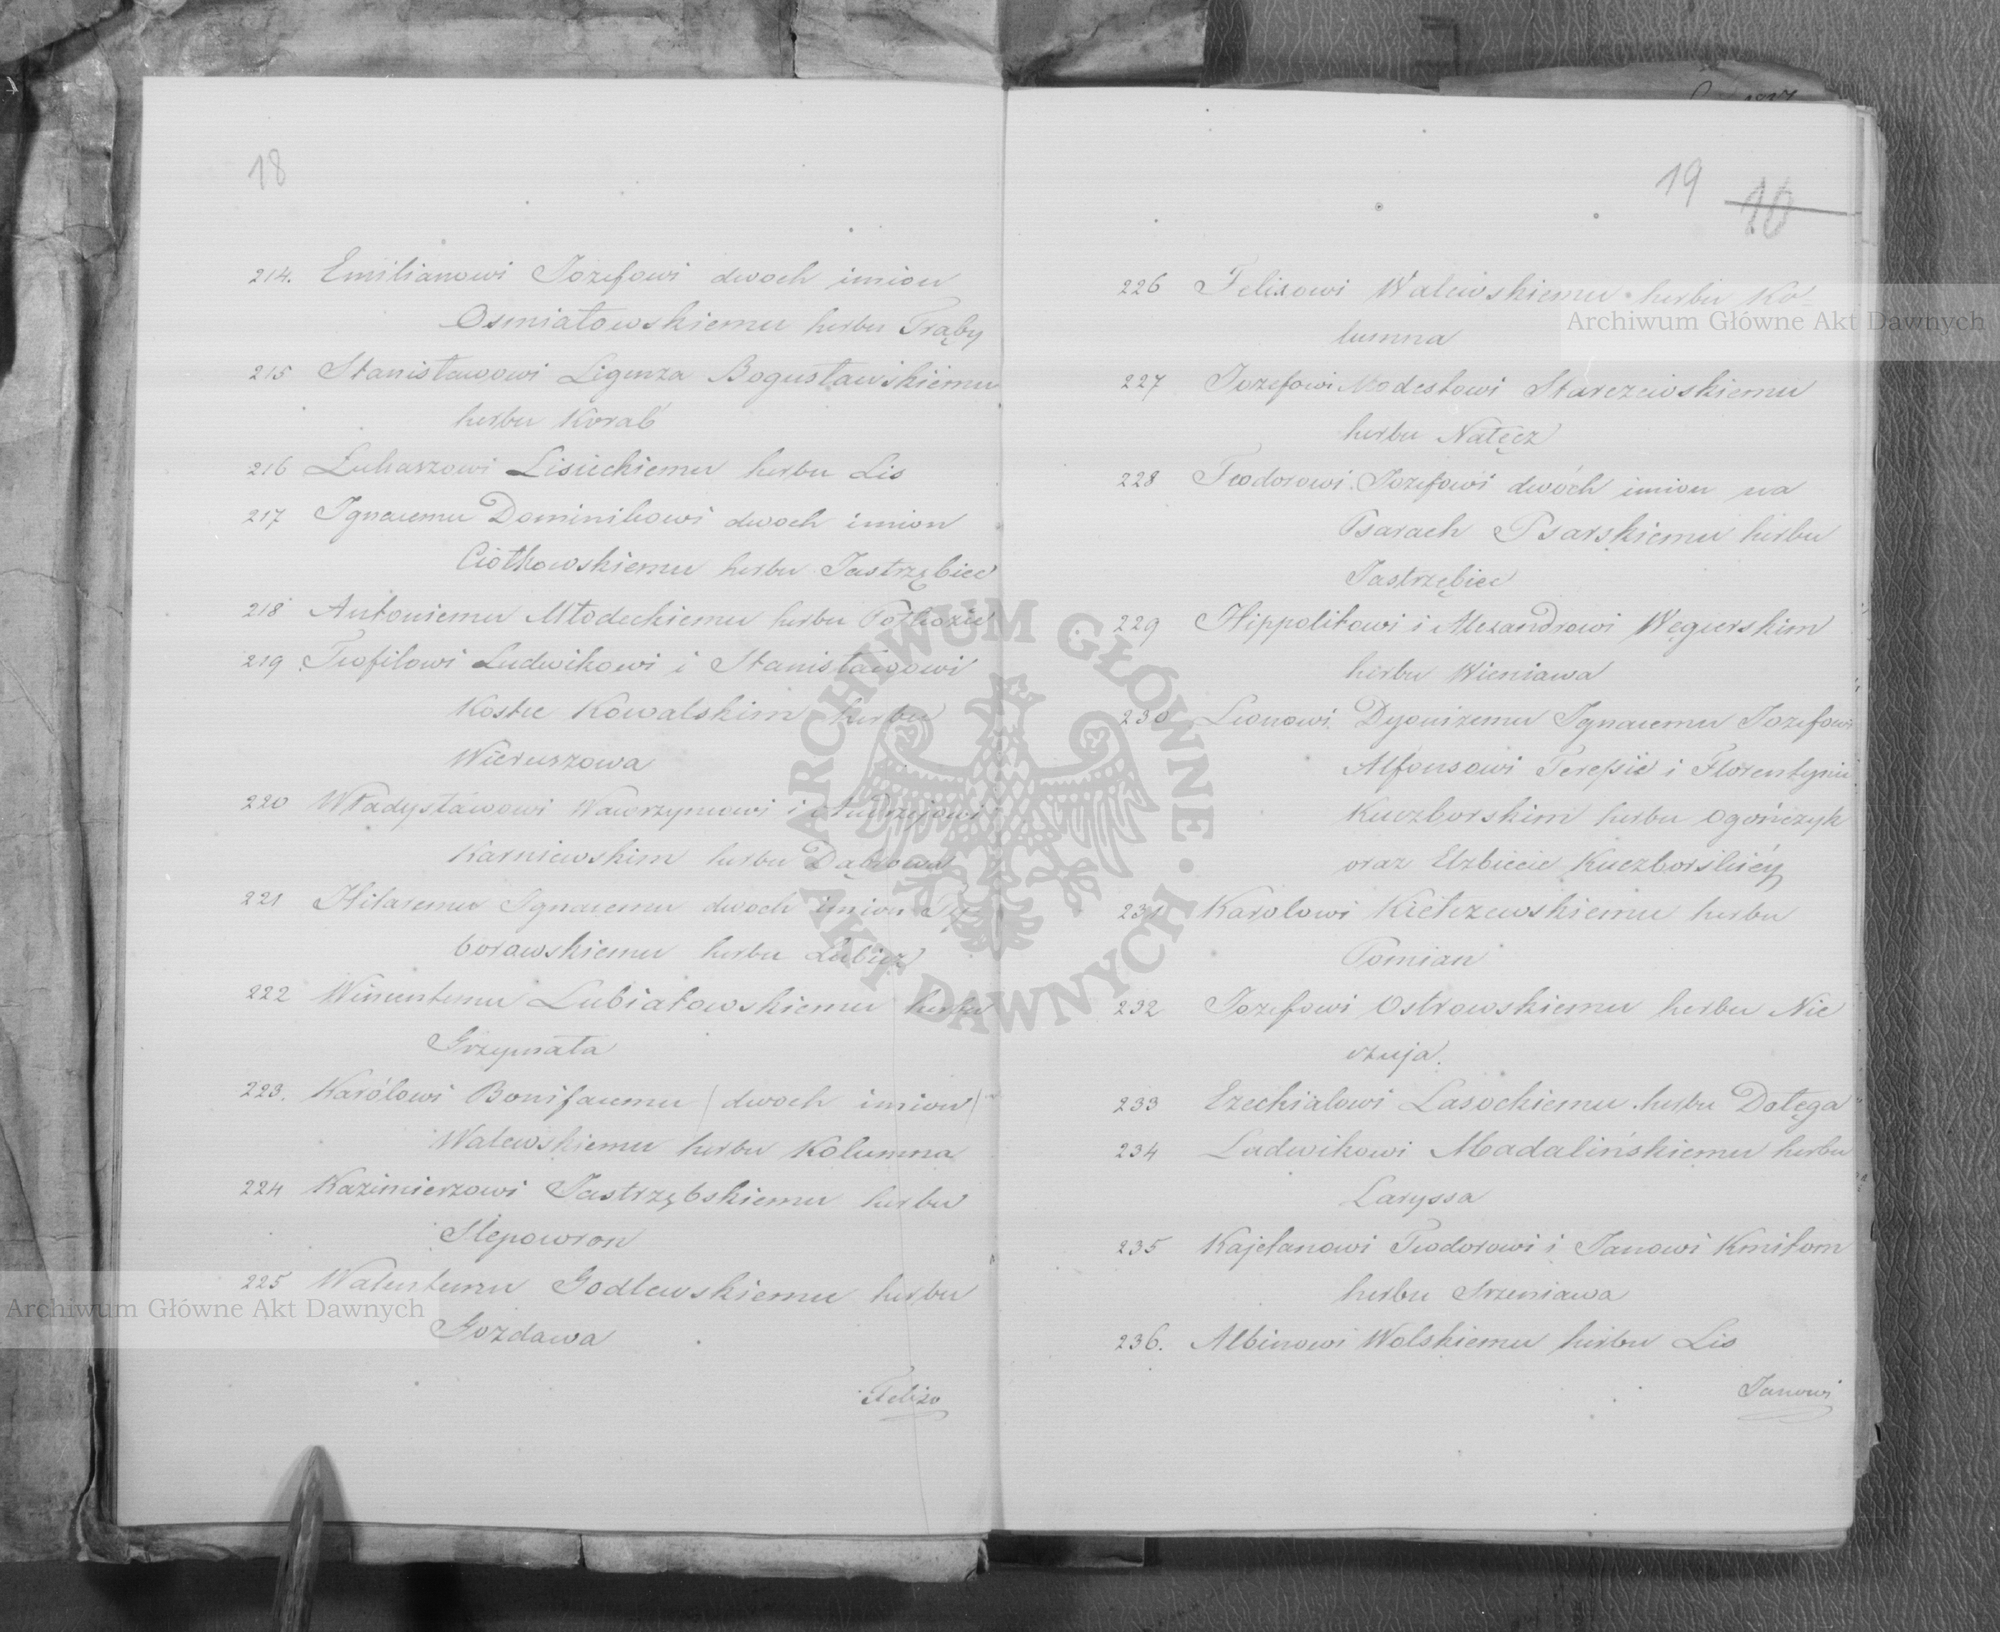 18
214. Emilianowi Jozefowi dwoch imion
Osmiałowskiemu herbu Trąby
215 Stanisławowi Ligenza Bogusławskiemu
herbu Korab
216 Łukaszowi Lisieckiemu herbu Lis
217 Ignacemu Dominikowi dwoch imion
Ciołkowskiemu herbu Jastrzębiec
218 Antoniemu Młodeckiemu herbu Połkozic
219 Teofilowi Ludwikowi i Stanisławowi
Kostce Kowalskim herbu
Wieruszowa
220 Władysławowi Wawrzyncowi i Andrzejowi
Karniewskim herbu Dąbrowa
221 Hilaremu Ignacemu dwoch imion Ty-
borowskiemu herbu Lubicz
222 Wincentemu Lubiatowskiemu herbu
Grzymała
223. Karólowi Bonifacemu (dwoch imion)
Walewskiemu herbu Kolumna
224 Kazimierzowi Jastrzębskiemu herbu
Slepowron
225 Walentemu Godlewskiemu herbu
Gozdawa
Felixo
19 10
226 Felixowi Walewskiemu herbu Ko-
lumna
227 Jozefowi Modestowi Starczewskiemu
herbu Nałęcz
228 Teodorowi Jozefowi dwóch imion na
Psarach Psarskiemu herbu
Jastrzębiec
229 Hippolitowi i Alexandrowi Węgierskim
herbu Wieniawa
230 Leonowi Dyonizemu Ignacemu Jozefowi
Alfonsowi Teressie i Florentynie
Kuczborskim herbu Ogończyk
oraz Elzbiecie Kuczborskiéy
231 Karolowi Kiełczewskiemu herbu
Pomian
232 Jozefowi Ostrowskiemu herbu Nie
czuja.
233 Ezechialowi Lasockiemu herbu Dołęga
234 Ludwikowi Madalińskiemu herbu
Laryssa
235 Kajetanowi Teodorowi i Janowi Kmitom
herbu Srzeniawa
236. Albinowi Wolskiemu herbu Lis
Janowi
Archiwum Główne Akt Dawnych
Archiwum Główne Akt Dawnych
ARCHIWUM GŁÓWNE AKT DAWNYCH